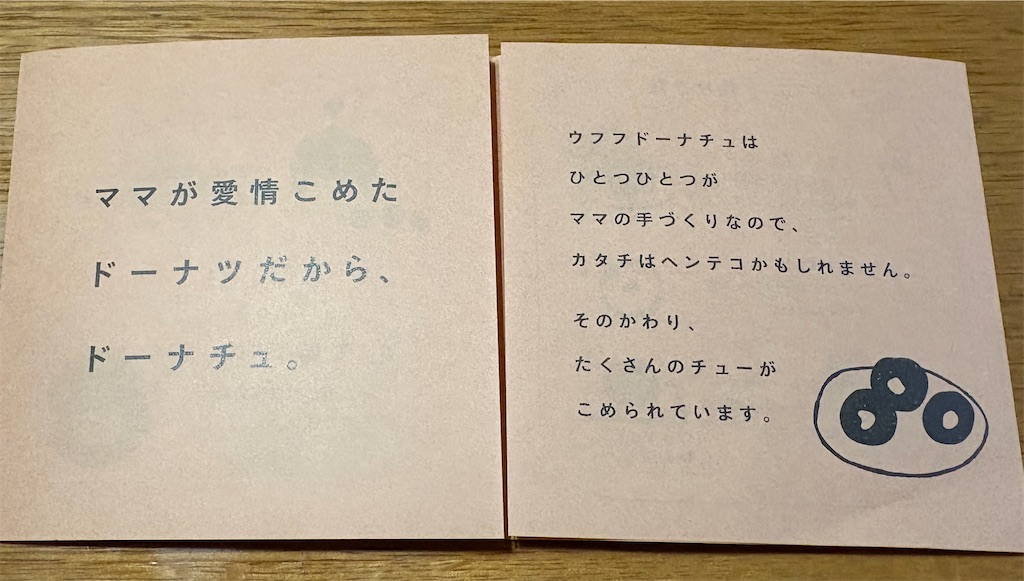 ママが愛情こめた
ドーナツだから、
ドーナチュ。
ウフフドーナチュは
ひとつひとつが
ママの手づくりなので、
カタチはヘンテコかもしれません。
そのかわり、
たくさんのチューが
こめられています。